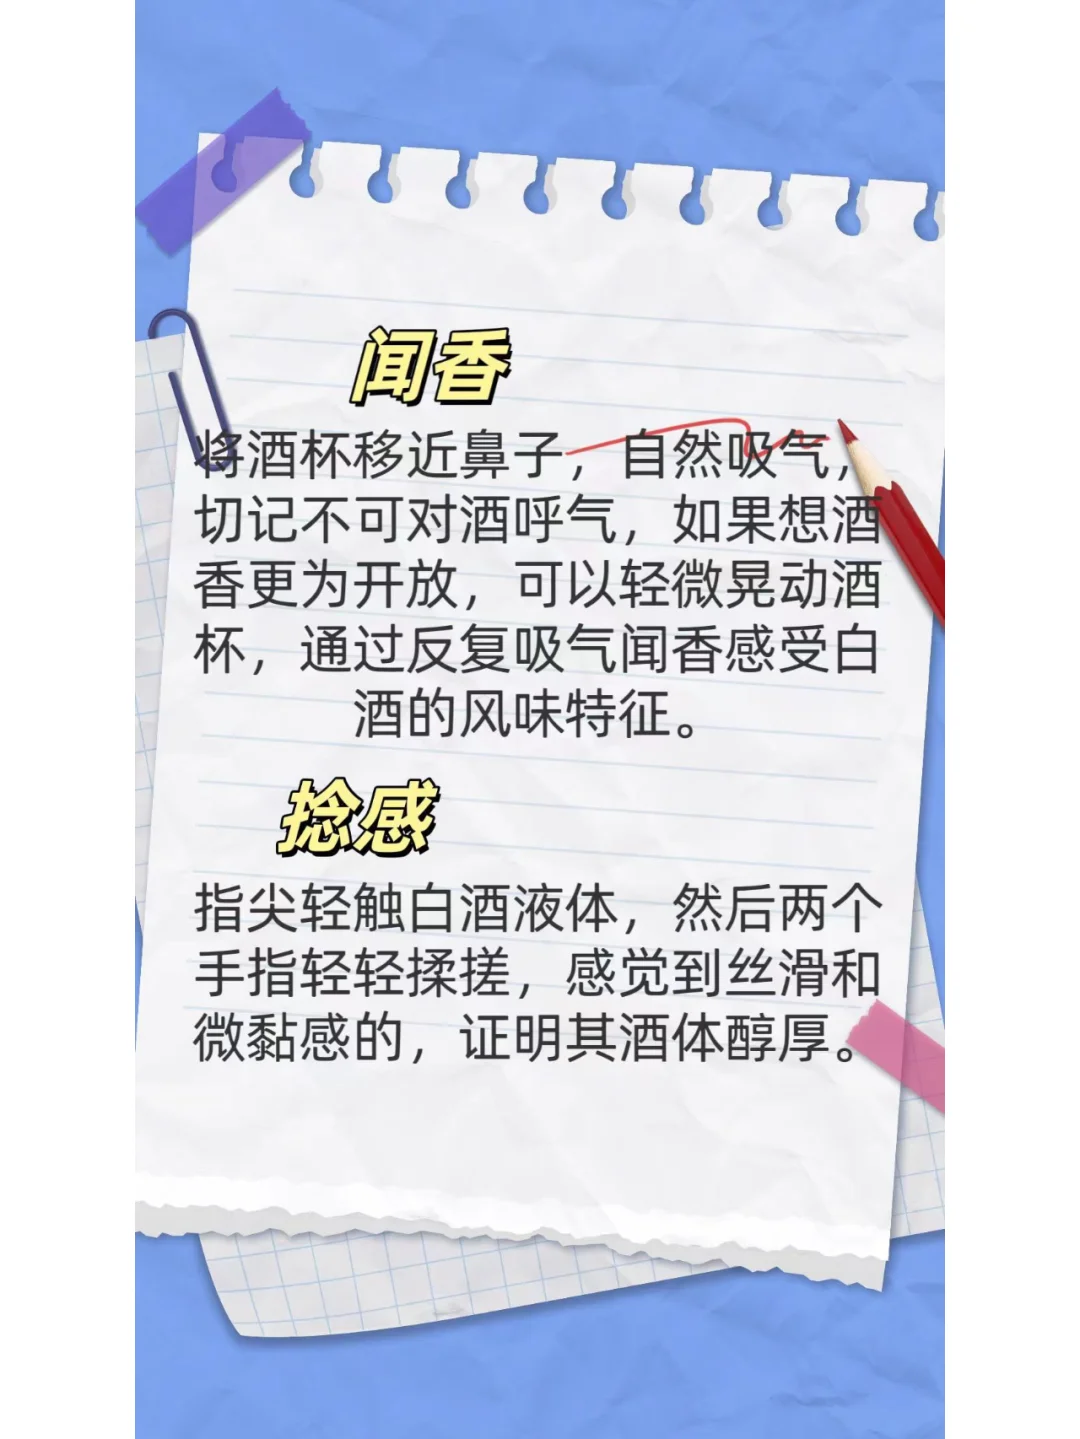 闻香
将酒杯移近鼻子，自然吸气，
切记不可对酒呼气，如果想酒
香更为开放，可以轻微晃动酒
杯，通过反复吸气闻香感受白
酒的风味特征。
捻感
指尖轻触白酒液体，然后两个
手指轻轻揉搓，感觉到丝滑和
微黏感的，证明其酒体醇厚。